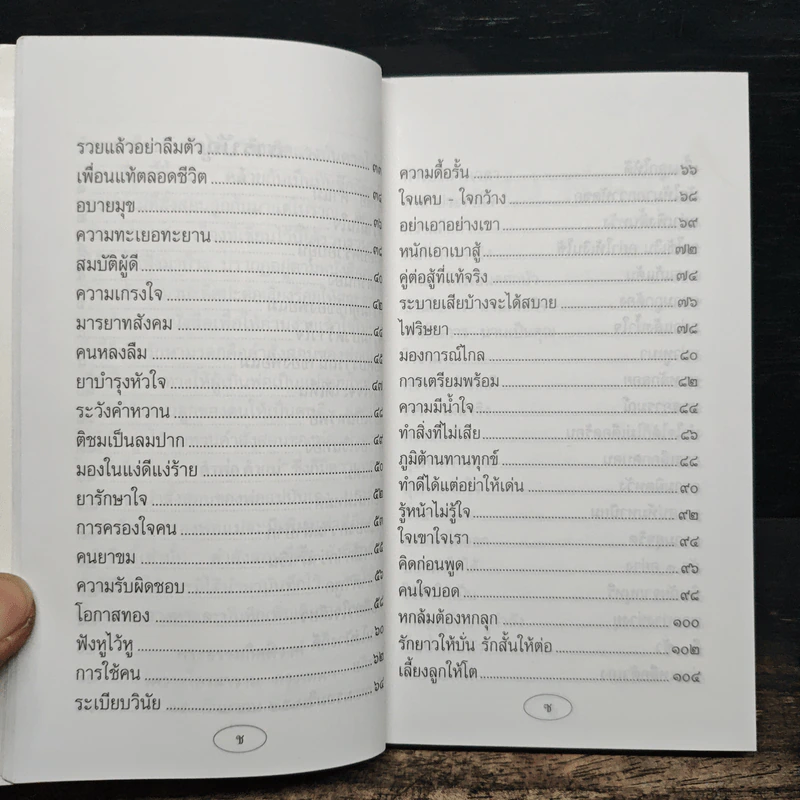 รวยแล้วอย่าลืมตัว ๓๓
เพื่อนแท้ตลอดชีวิต ๓๔
อบายมุข ๓๖
ความทะเยอทะยาน ๓๘
สมบัติผู้ดี ๔๐
ความเกรงใจ ๔๒
มารยาทสังคม ๔๔
คนหลงลืม ๔๕
ยาบำรุงหัวใจ ๔๗
ระวังคำหวาน ๔๘
ติชมเป็นลมปาก ๔๙
มองในแง่ดีแง่ร้าย ๕๐
ยารักษาใจ ๕๒
การครองใจคน ๕๓
คนยาขม ๕๕
ความรับผิดชอบ ๕๖
โอกาสทอง ๕๘
ฟังหูไว้หู ๖๐
การใช้คน ๖๒
ระเบียบวินัย ๖๔
ช
ความดื้อรั้น ๖๖
ใจแคบ - ใจกว้าง ๖๘
อย่าเอาอย่างเขา ๖๙
หนักเอาเบาสู้ ๗๒
คู่ต่อสู้ที่แท้จริง ๗๔
ระบายเสียบ้างจะได้สบาย ๗๖
ไฟริษยา ๗๘
มองการณ์ไกล ๘๐
การเตรียมพร้อม ๘๒
ความมีน้ำใจ ๘๔
ทำสิ่งที่ไม่เสีย ๘๖
ภูมิต้านทานทุกข์ ๘๘
ทำดีได้แต่อย่าให้เด่น ๙๐
รู้หน้าไม่รู้ใจ ๙๒
ใจเขาใจเรา ๙๔
คิดก่อนพูด ๙๖
คนใจบอด ๙๘
หกล้มต้องหกลุก ๑๐๐
รักยาวให้บั่น รักสั้นให้ต่อ ๑๐๒
เลี้ยงลูกให้โต ๑๐๔
ซ